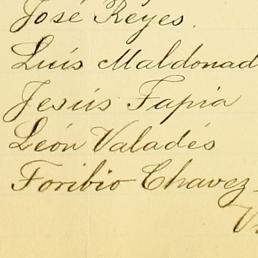 José Reyes.
Luís Maldonad
Jesús Tapia
León Valadés
Toribio Chavez